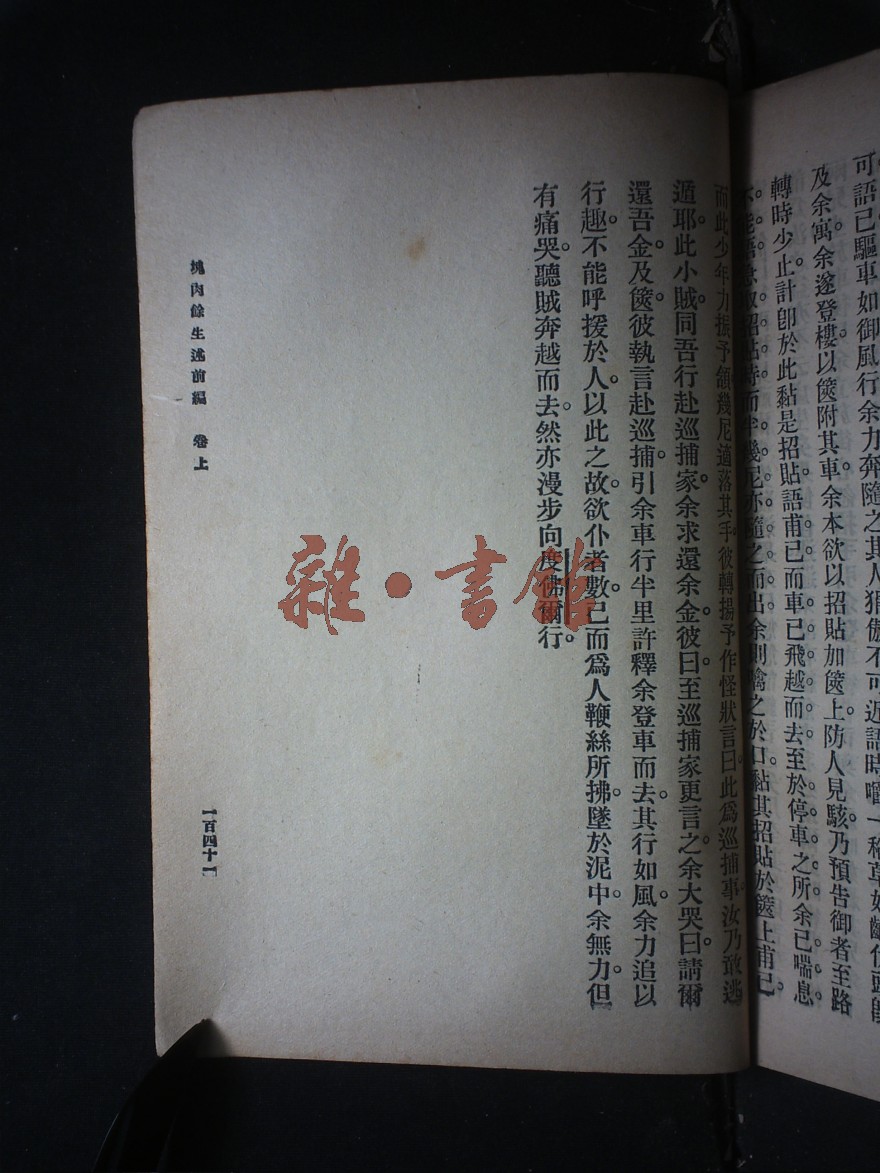 可語已驅車如御風行余力奔隨之其人猾傲不可近語時囓一稀草如齝
及余寓余遂登樓以篋附其車余本欲以招貼加篋上防人見駭乃預告御者至路
轉時少止計卽於此黏是招貼語甫已而車已飛越而去至於停車之所余已喘息
不能語急取招貼時而半幾尼亦隨之而出余則噙之於口黏其招貼於篋上甫已
而此少年力振予頷幾尼適落其手彼轉揚予作怪狀言曰此爲巡捕事汝乃敢逃
遁耶此小賊同吾行赴巡捕家余求還余金彼曰至巡捕家更言之余大哭曰請爾
還吾金及篋彼執言赴巡捕引余車行半里許釋余登車而去其行如風余力追以
行趣不能呼援於人以此之故欲仆者數已而爲人鞭絲所拂墜於泥中余無力但
有痛哭聽賊奔越而去然亦漫步向度佛爾行。
塊肉餘生述前編 卷上
一百四十一
雜·書館